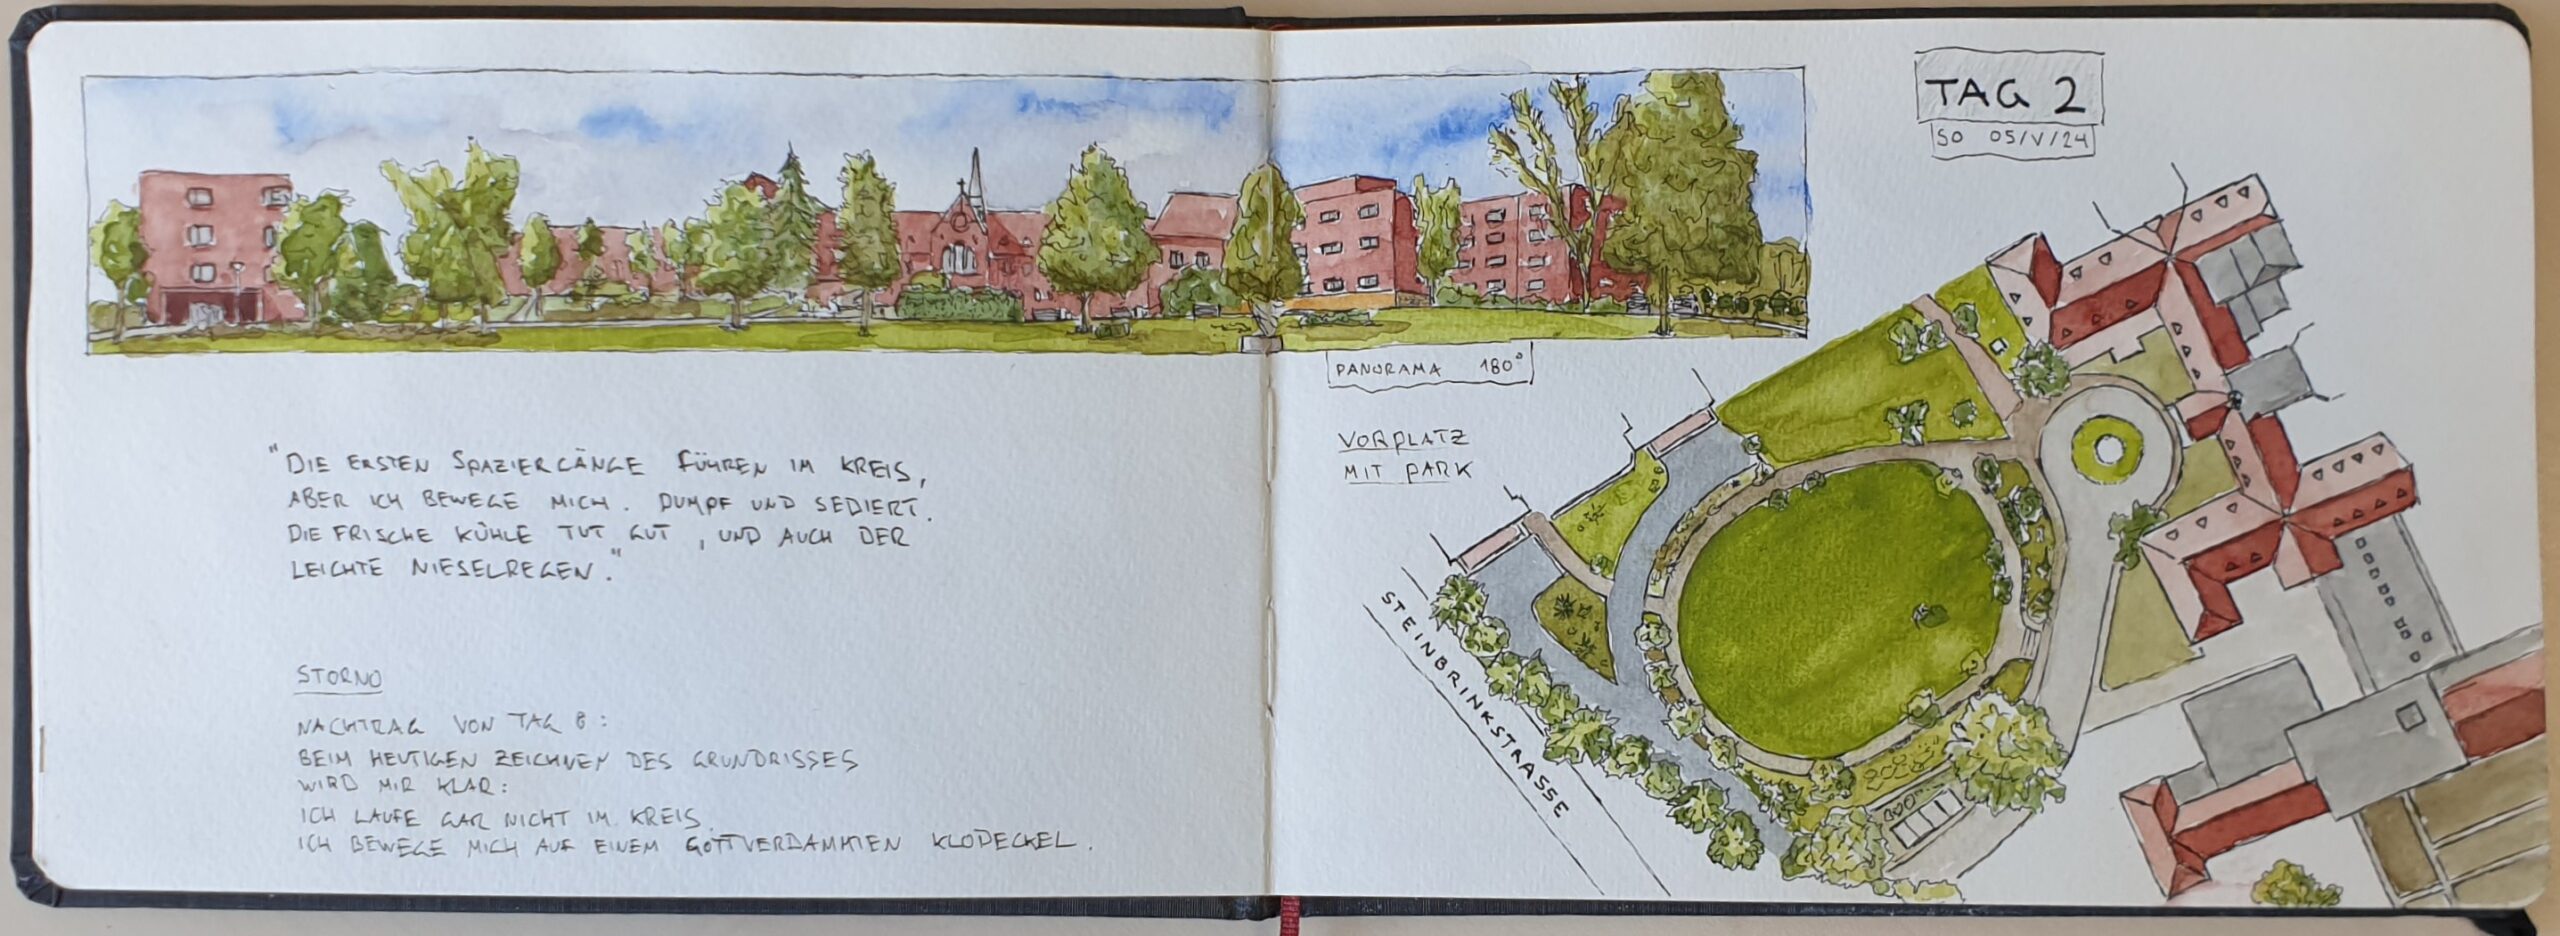 TAG 2
SO 05/V/24
PANORAMA 180°
"DIE ERSTEN SPAZIERGÄNGE FÜHREN IM KREIS,
ABER ICH BEWEGE MICH. DUMPF UND SEDIERT.
DIE FRISCHE KÜHLE TUT GUT, UND AUCH DER
LEICHTE NIESELREGEN."
STORNO
NACHTRAG VON TAG 8:
BEIM HEUTIGEN ZEICHNEN DES GRUNDRISSES
WIRD MIR KLAR:
ICH LAUFE GAR NICHT IM KREIS.
ICH BEWEGE MICH AUF EINEM GOTTVERDAMMTEN KLODECKEL.
VORPLATZ
MIT PARK
STEINBRINKSTRASSE